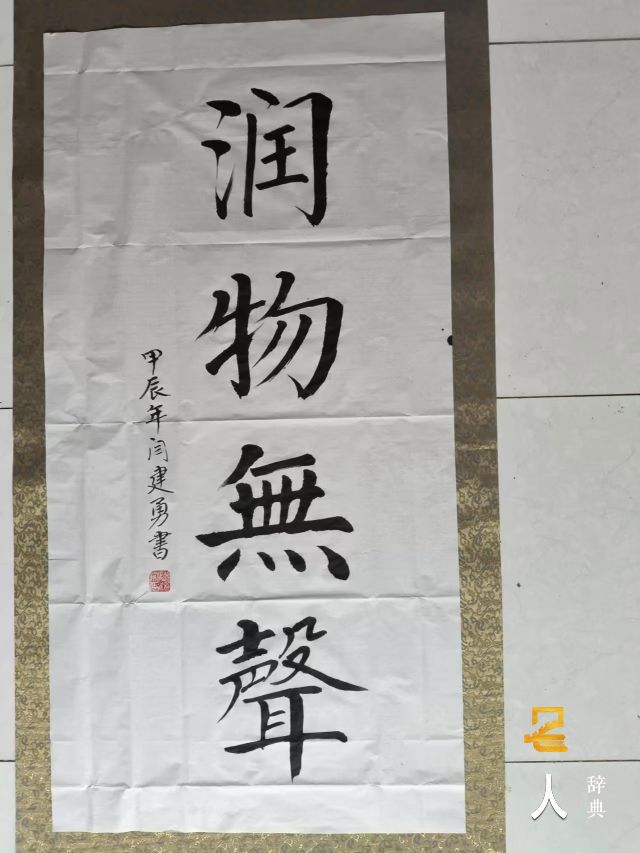 润物無聲
甲辰年闫建勇書
名人
辞典